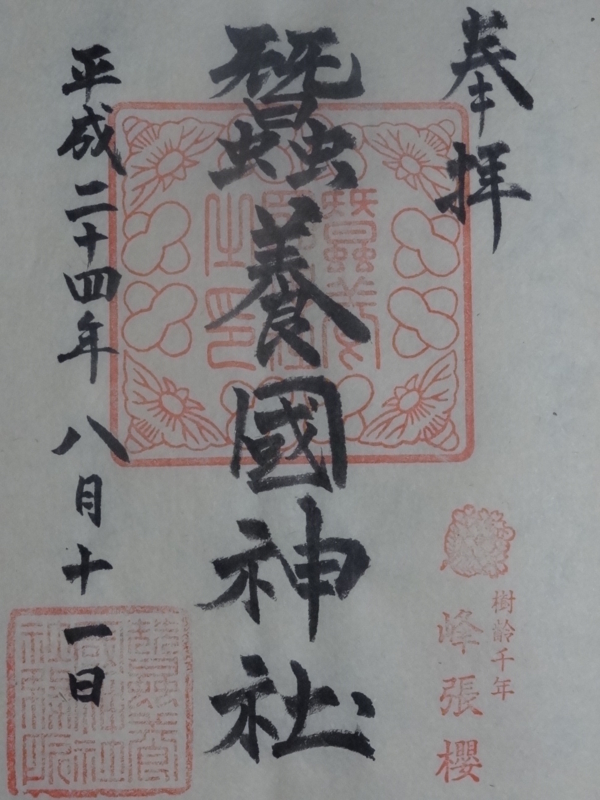 奉拝
樹齢千年
峰張櫻
蠶養國神社
平成二十四年 八月十一日